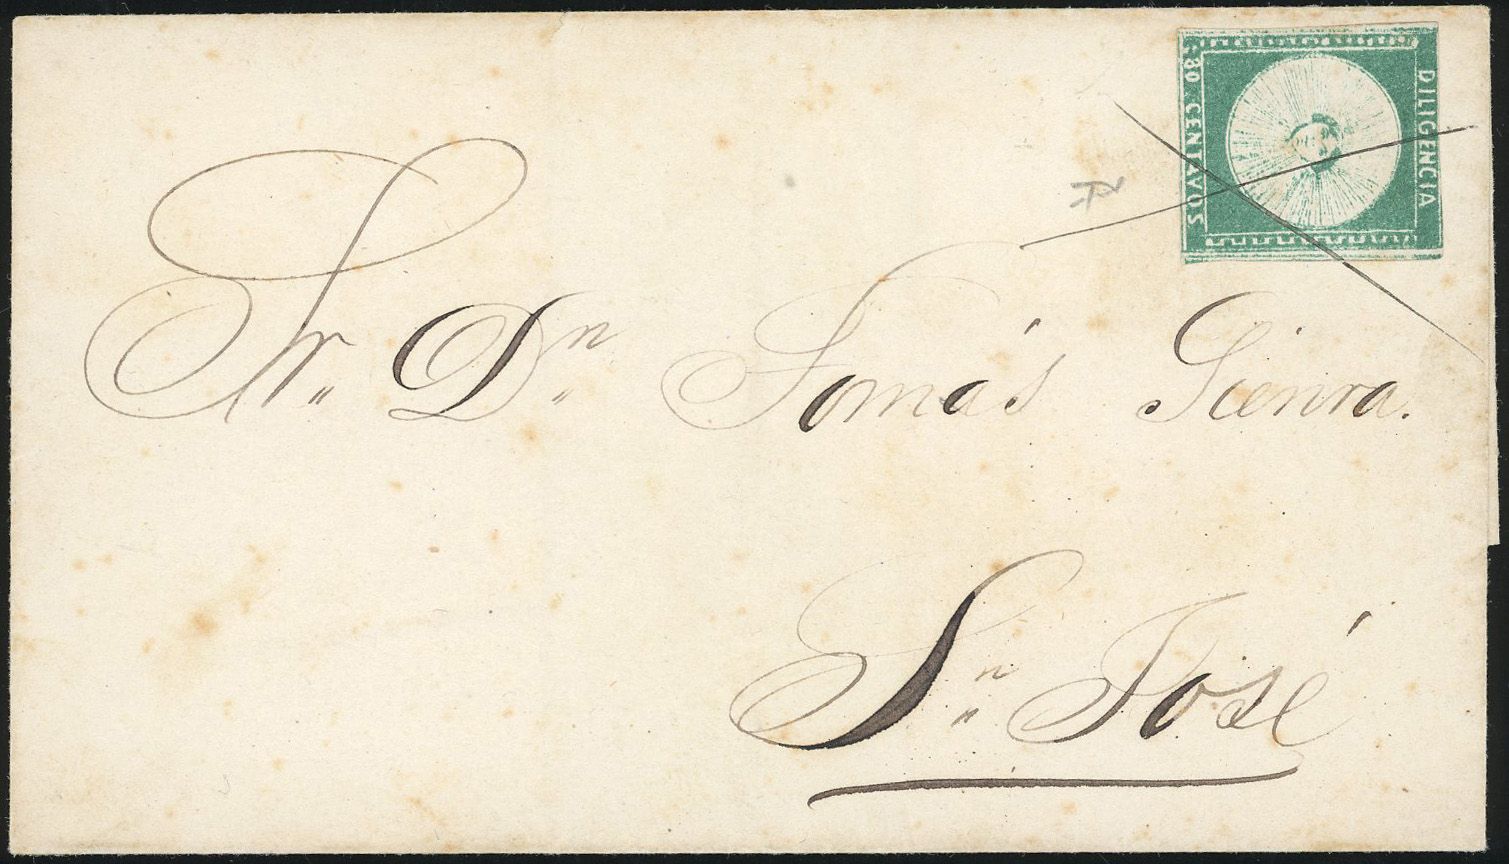 80 CENTAVOS
DILIGENCIA
Sr. Dn. Tomás Sienra.
Sn. José